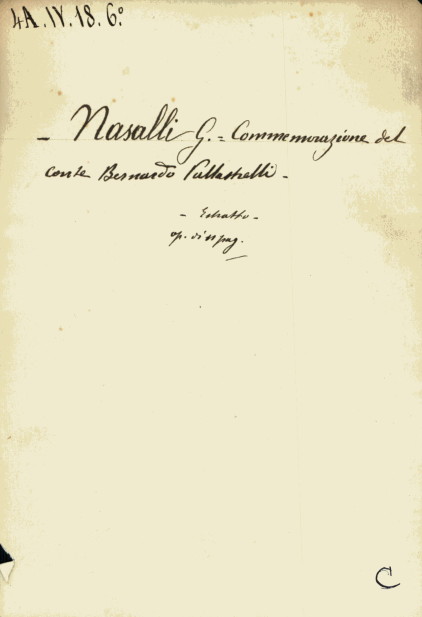 4A.IV.18.6.º
- Nasalli G. = Commemorazione del
conte Bernardo Pallastrelli -
- Estratto -
op. di 11 pag.
C